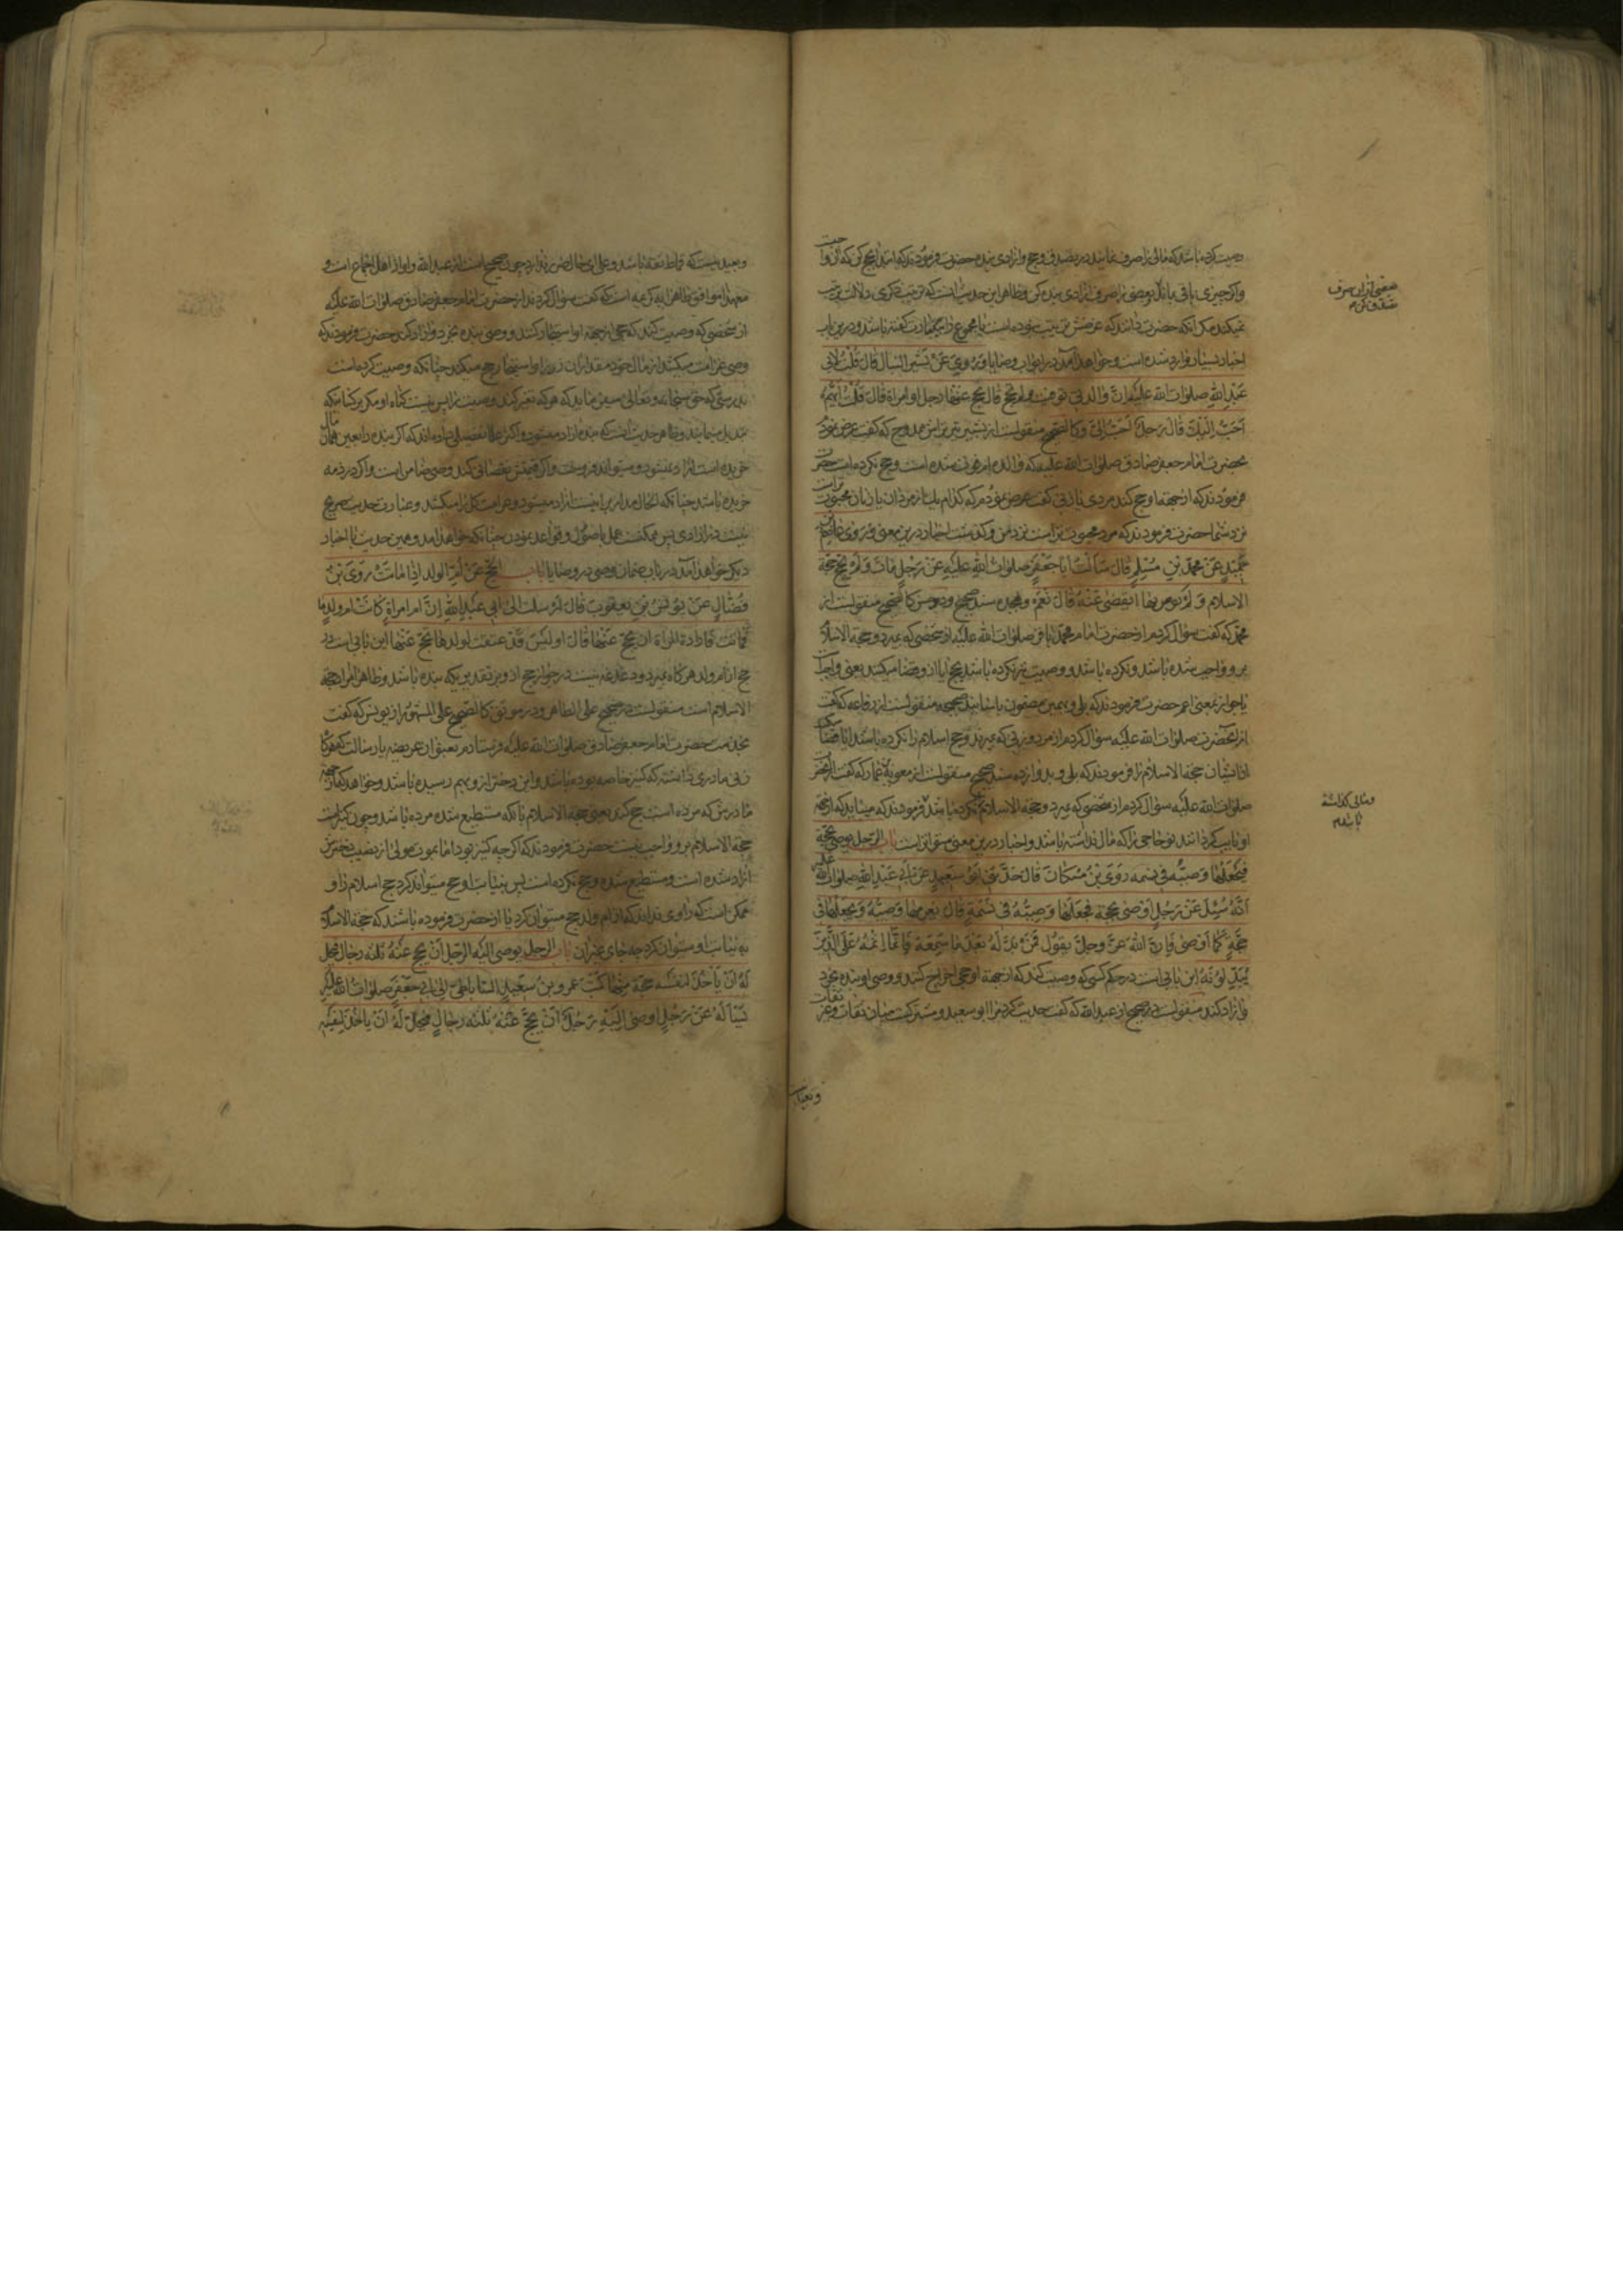 وصیت کرده باشد که مالی را صرف نمایند در تصدق و حج و آزادی بنده حضرت فرمودند که ابتدا بحج کن که آن واجبست
و اگر چیزی باقی بماند بعضی را صرف آزادی بنده کن و ظاهر این حدیث آنست که ترتیب ذکری دلالت بر ترتیب
نمیکند مگر آنکه حضرت دانند که غرضش ترتیب نبوده است یا مجموع را بیک عبارت گفته باشد و درین باب
اخبار بسیار وارد شده است و خواهد آمد در ابواب وصایا وَ رُوِیَ عَنْ بَشیر النبال قالَ قُلْتُ لاَبی
عَبْدِ اللهِ صلوات الله علیه اِنَّ وٰالدتی توفیت ولم تحج قال یحج عَنْهٰا رجل او امراة قٰالَ قُلْتُ اَیُّهُمٰا
اَحَبُّ اِلَیْكَ قٰالَ رَجُلٌ اَحَبُّ اِلَیَّ و کالصحیح منقولست از بشیر تیرتراش ممدوح که گفت عرض نمودم
بحضرت امام جعفر صادق صلوات الله علیه که والده‌ام فوت شده است و حج نکرده است حضرت
فرمودند که از جهة او حج کند مردی یا زنی گفت عرض نمودم که کدام یك از مردان یا زنان محبوب‌تراست
نزد شما حضرت فرمودند که مرد محبوب‌تر است نزد من و گذشت اخبار درین معنی وَ رَوی عاصم بن
حُمَیْدٍ عَنْ محمّدِ بْنِ مُسْلِمٍ قٰالَ سَأَلْتُ اَبٰا جَعْفَرٍ صلوات الله علیه عَنْ رَجُلٍ مٰاتَ وَ لَمْ یَحُجَّ حَجَّةَ
الاسلام وَ لَمْ یوص بها اَیُقْضیٰ عَنْهُ قٰالَ نَعَمْ و بچند سند صحیح و حسن کالصحیح منقولست از
محمّد که گفت سؤال کردم از حضرت امام محمّد باقر صلوات الله علیه از شخصی که بمیرد و حجة الاسلام
برو واجب شده باشد و نکرده باشد و وصیت نیز نکرده باشد بحج ایا ازو قضا میکنند یعنی واجبست
یا جواز بمعنی اعم حضرت فرمودند که بلی و بهمین مضمون باسانید صحیحه منقولست از رفاعه که گفت
از آنحضرت صلوات الله علیه سؤال کردم از مرد و زنی که بمیرند و حج اسلام را نکرده باشند ایا قضا میکنند
از ایشان حجة الاسلام را فرمودند که بلی و بدوازده سند صحیح منقولست از معویة بن عمار که گفت از آنحضرت
صلوات الله علیه سؤال کردم از شخصی که بمیرد و حجة الاسلام نکرده باشد فرمودند که میباید که از جهة
او نایب گردانند نوحاجی را که مال نداشته باشد و اخبار درین معنی متواتر است باب الرّجل یوصی بحجّة
فیَجْعَلُهٰا وَصیُّه فی نسمه رَوَی بْنُ مُسْکٰانَ قٰالَ حَدَّثَنی اَبُو سَعیدٍ عَنْ اَبی عَبْدِ اللهِ صلوات الله علیه
اَنَّهُ سُئِلَ عَنْ رَجُلٍ اَوْصیٰ بحَجَّةٍ فَجَعَلَهٰا وَصِیُّهُ فی نَسَمَةٍ قٰالَ یَغْرِمُهٰا وَصِیُّهُ وَ یَجْعَلُهٰا فی
حَجَّةٍ کَمٰا اَوْصیٰ فَاِنَّ اللهَ عَزَّ وجلَّ یَقُولُ فَمَنْ بَدَّلَهُ بَعْدَ مٰا سَمِعَهُ فَاِنَّمٰا اِثْمُهُ عَلَی الَّذینَ
یُبَدِّلُونَهُ این بابی است در حکم کسی که وصیت کند که از جهة او حجی اخراج کنند و وصی او بنده بخرد
و آزاد کند منقولست در صحیح از عبدالله که گفت حدیث کرد مرا ابو سعید و مشترکست میان ثقات و غیر ثقات
بعضی از آن صرف
و مالی نگذاشته
باشد
و بعید نیست
و بعید نیست که قماط ثقه باشد و علی ای حال ضرر ندارد چون صحیح است از عبدالله و او از اهل اجماع است و
معهذا موافق ظاهر آیه کریمه است که گفت سؤال کردند از حضرت امام جعفر صادق صلوات الله علیه
از شخصی که وصیت کند که حجی از جهة او استیجار کنند و وصی بنده بخرد و آزاد کند حضرت فرمودند که
وصی غرامت میکشد از مال خود مقدار آن زر را و استیجار حج میکند چنانکه وصیت کرده است
بدرستی که حق سبحانه و تعالی میفرماید که هر که تغیر کند وصیت را پس نیست گناه او مگر بر کسانی که
تبدیل مینمایند و ظاهر حدیث آنست که بنده آزاد میشود و اکثر علما تفصیلی داده‌اند که اگر بنده را بعین همان مال
خریده است آزاد نمیشود و میتواند فروخت و اگر قیمتش نقصانی کند وصی ضامن است و اگر در ذمه
خریده باشد چنانکه الحال مدار برانیست آزاد میشود و غرامت کل را میکشد و عبارت حدیث صریح
نیست در آزادی پس ممکنست عمل باصول و قواعد نمودن چنانکه خواهد آمد و همین حدیث با اخبار
دیگر خواهد آمد در باب ضمان وصی در وصایا باب الحَجِّ عَنْ اُمِّ الولد اِذٰا مٰاتَتْ رَوَی بْنُ
فَضّٰالٍ عَنْ یُونُسَ بْنِ یَعقوبَ قٰالَ اَرْسلت الیٰ اَبی عَبْدِ اللهِ اِنَّ ام امراةٍ کٰانَتْ ام ولدٍ
فَمٰاتت فَارادت المراة ان تحج عَنْهٰا قٰالَ اَوَ لَیْسَ قَدْ عتقت بولدها تحجُّ عَنْهٰا این بابی است در
حج از ام ولد هر گاه بمیرد
الاسلام است منقولست در صحیح علی الظاهر و در موثق کالصحیح علی المشهور از یونس که گفت
بخدمت حضرت امام جعفر صادق صلوات الله علیه فرستادم بعنوان عریضه یا رسالت که هر گاه
زنی مادری داشته که کنیز خاصه بوده باشد و این دختر ازو بهم رسیده باشد و خواهد که از جهة
مادرش که مرده است حج کند یعنی حجة الاسلام با آنکه مستطیع شده مرده باشد و چون کنیز است
حجة الاسلام برو واجب نیست حضرت فرمودند که اگرچه کنیز بود اما بموت مولی از نصیب دخترش
آزاد شده است و مستطیع شده و حج نکرده است پس بنیابت او حج میتواند کرد حج اسلام را و
ممکن است که راوی نداند که از ام ولد حج میتوان کرد یا از حضرت فرموده باشند که حجة الاسلام
به نیابت او میتوان کرد چه جای غیر آن باب الرجل یوصی الیه الرّجل اَنْ یحج عَنْهُ ثلثة رجال فیحل
لَهُ اَنْ یَأخُذَ لِنفسه حجة مِنْهٰا کَتَبَ عمرو بنُ سَعیدٍ السّاباطی الیٰ اَبی جَعْفَرٍ صلوات الله علیه
یَسْأَلُهُ عَنْ رَجُلٍ اوصیٰ اِلَیْهِ رَجُلٌ اَنْ یَحُجَّ عَنْهُ ثَلٰثَةُ رِجٰالٍ فَیَحِلُّ لَهُ اَنْ یاخُذَ لِنَفْسِهِ